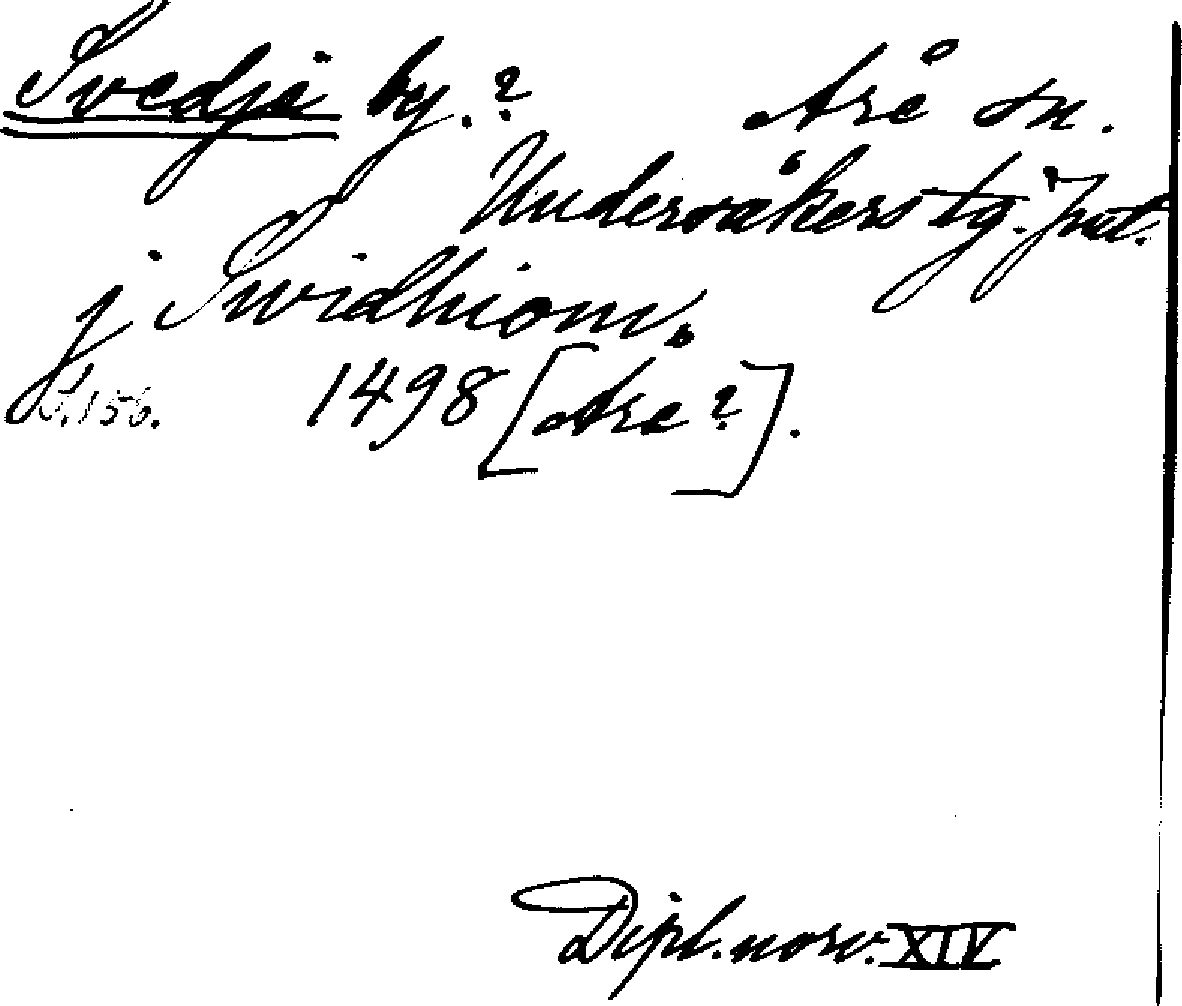 Svedje by.? Åre sn.
Undersåkers tg. Jmt.
j Swidhiom.
S. 156. 1498 [Åre?].
Dipl. norv. XIV